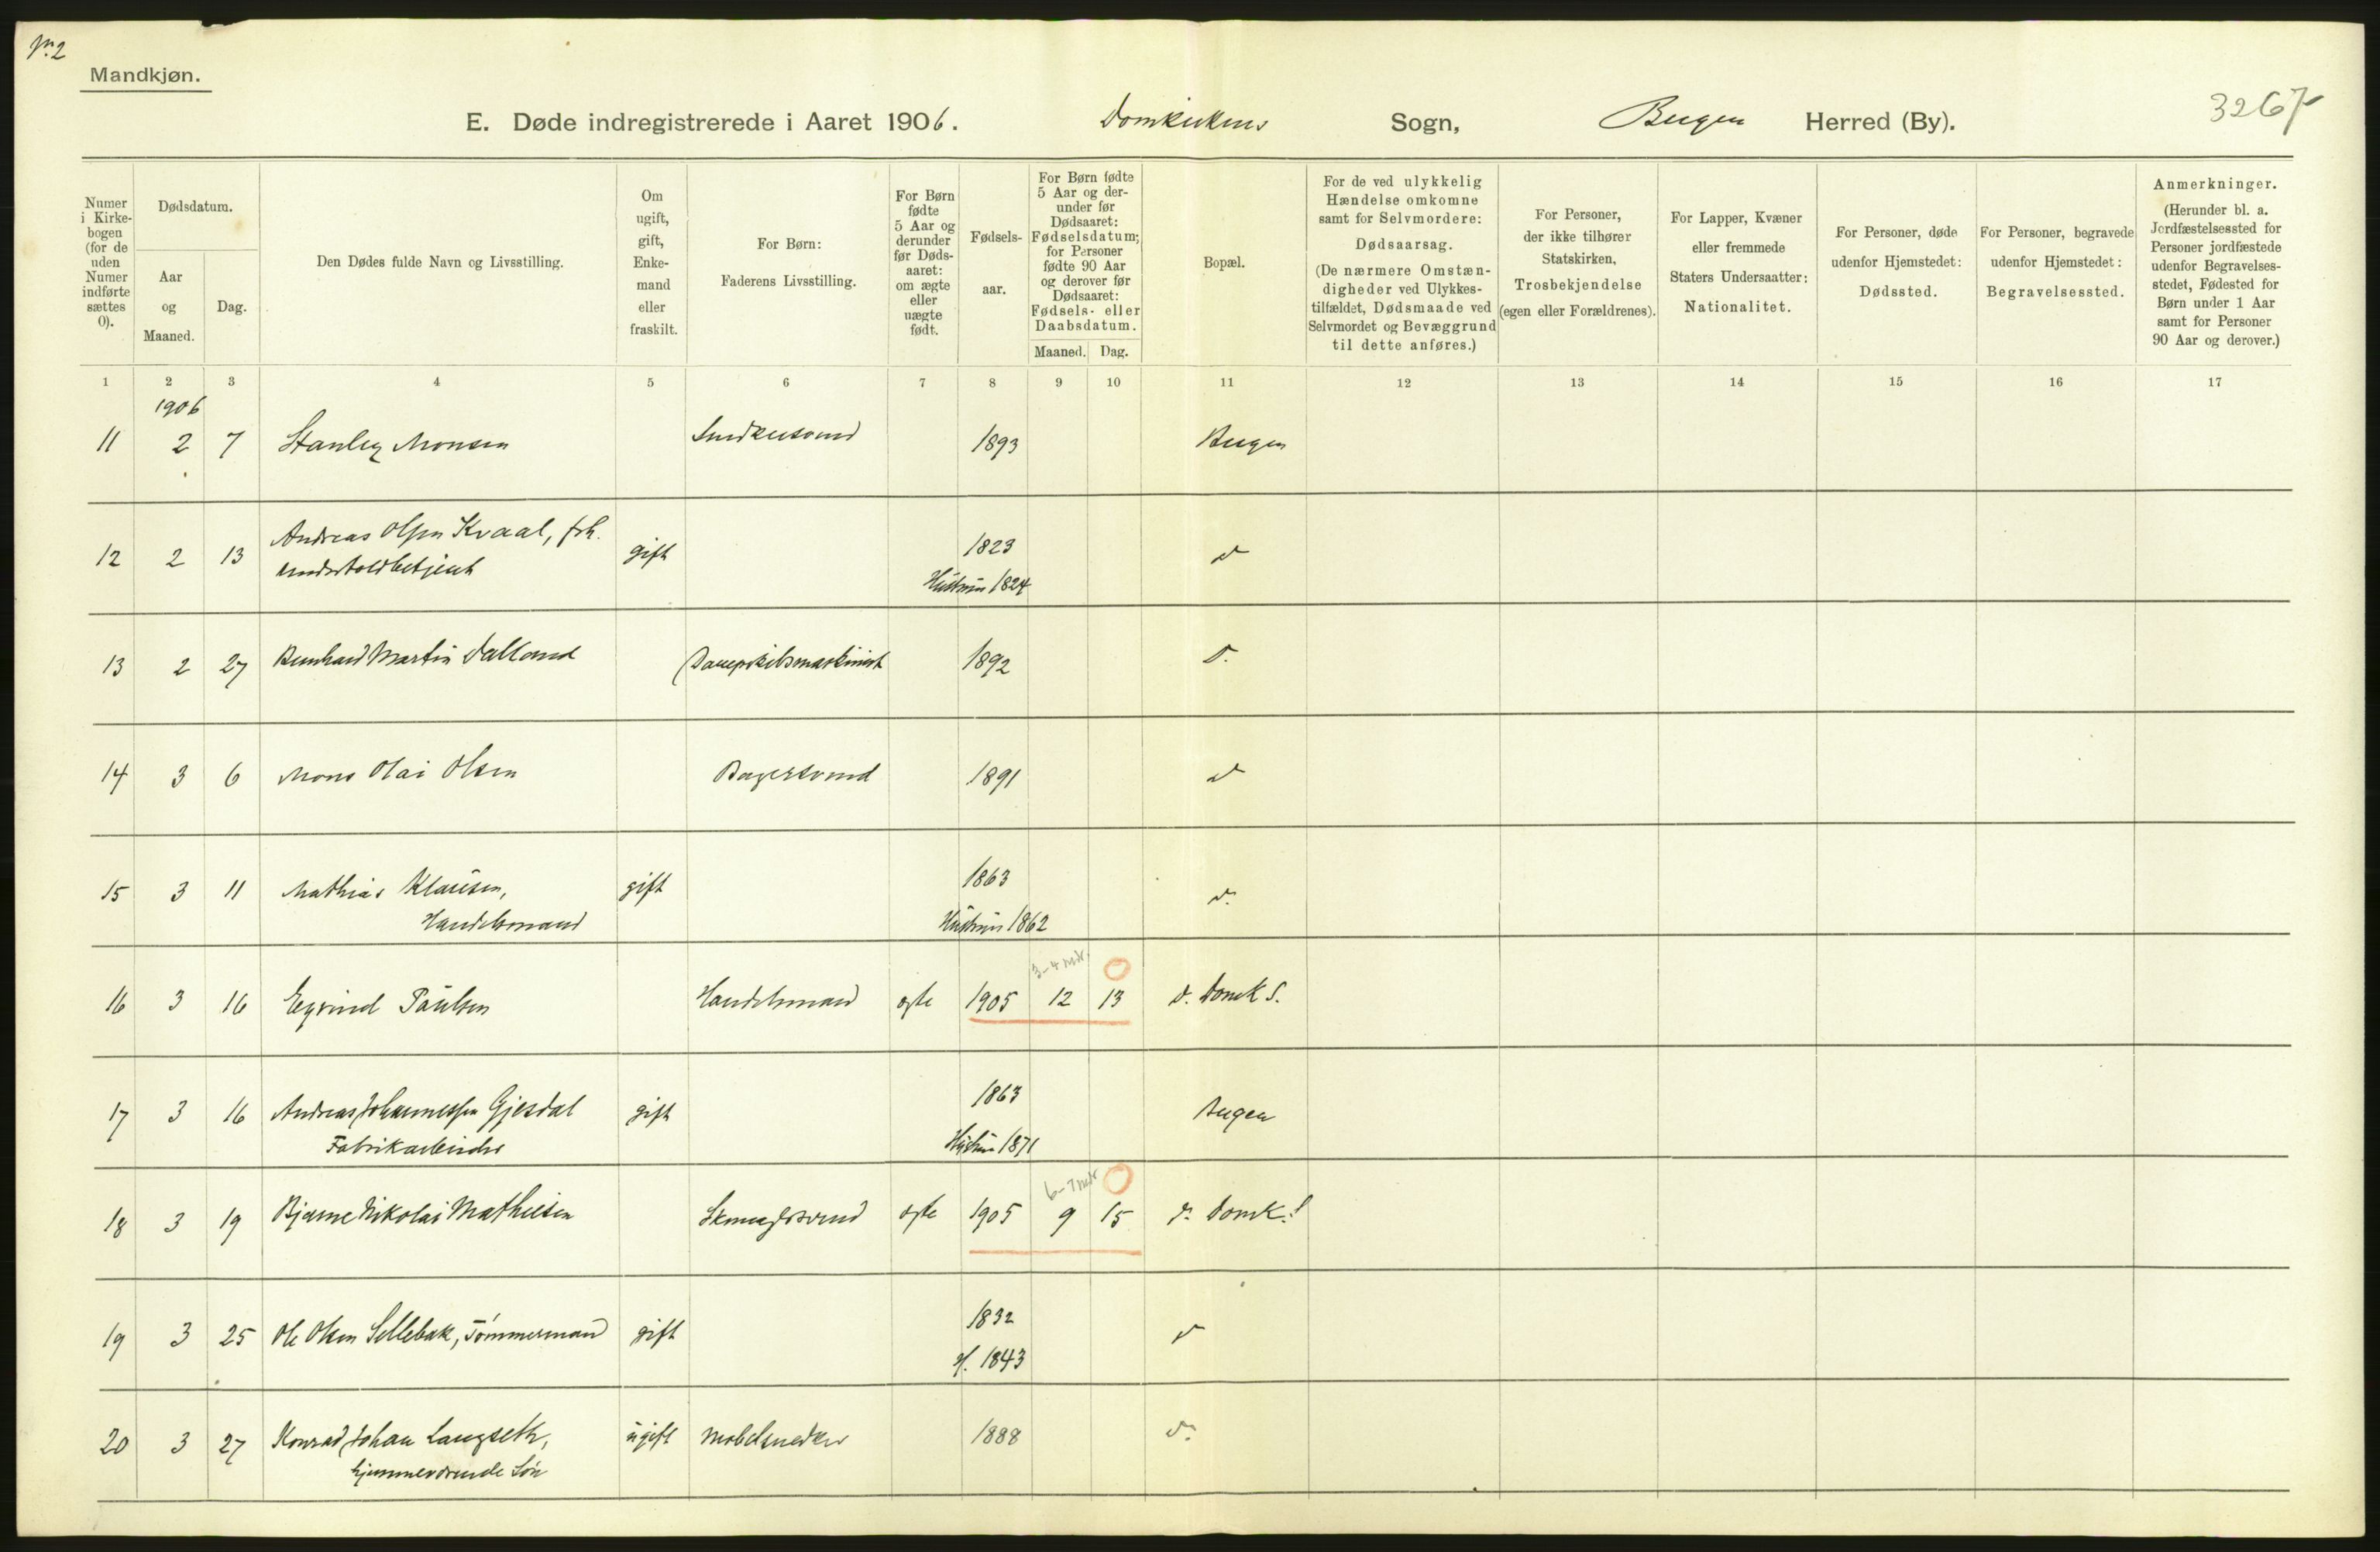 No. 2
Mandkjøn.
E. Døde indregistrerede i Aaret 1906. Domkirkens Sogn, Bergen Herred (By). 3267
Numer i Kirkebogen (for de uden Numer indførte sættes 0).
Dødsdatum.
Aar og Maaned.
Dag.
Den Dødes fulde Navn og Livsstilling.
Om ugift, gift, Enkemand eller fraskilt.
For Børn: Faderens Livsstilling.
For Børn fødte 5 Aar og derunder før Dødsaaret: om ægte eller uægte født.
Fødselsaar.
For Børn fødte 5 Aar og derunder før Dødsaaret: Fødselsdatum; for Personer fødte 90 Aar og derover før Dødsaaret: Fødsels- eller Daabsdatum.
Maaned. Dag.
Bopæl.
For de ved ulykkelig Hændelse omkomne samt for Selvmordere: Dødsaarsag. (De nærmere Omstændigheder ved Ulykkestilfældet, Dødsmaade ved Selvmordet og Bevæggrund til dette anføres.)
For Personer, der ikke tilhører Statskirken, Trosbekjendelse (egen eller Forældrenes).
For Lapper, Kvæner eller fremmede Staters Undersaatter: Nationalitet.
For Personer, døde udenfor Hjemstedet: Dødssted.
For Personer, begravede udenfor Hjemstedet: Begravelsessted.
Anmerkninger. (Herunder bl. a. Jordfæstelsessted for Personer jordfæstede udenfor Begravelsesstedet, Fødested for Børn under 1 Aar samt for Personer 90 Aar og derover.)
1 2 3 4 5 6 7 8 9 10 11 12 13 14 15 16 17
1906
11 2 7 Stanley Monsen Snedkersvend 1893 Bergen
12 2 13 Andreas Olsen Kvaal, frh. gift 1823 d
undertoldbetjent Hustru 1824
13 2 27 Bernhard Martin Dalland Dampskibsmaskinist 1892 d.
14 3 6 Mons Olai Olsen Bagersvend 1891 d
15 3 11 Mathias Klausen, gift 1863 d.
Handelsmand Hustru 1862
3-4 mdr.
16 3 16 Eyvind Paulsen Handelsmand ægte 1905 12 13 d. Domk S.
17 3 16 Andreas Johannessen Gjesdal gift 1863 Bergen
Fabrikarbeider Hustru 1871
6-7 mdr
18 3 19 Bjarne Nikolai Mathiesen Skomagersvend ægte 1905 9 15 d. Domk. S
19 3 25 Ole Olsen Sellebak, Tømmermand gift 1832 d
H. 1843
20 3 27 Konrad Johan Langseth, ugift Møbelsnedker 1888 d.
hjemmeværende Søn